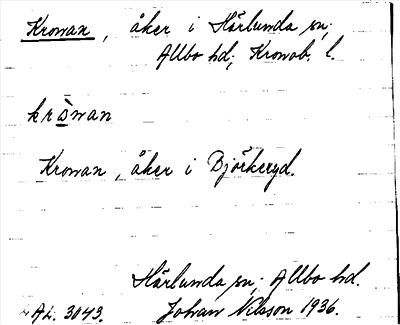 Kronan, åker i Härlunda sn;
Allbo hd; Kronob. l.
krònan
Kronan, åker i Björkeryd.
Härlunda sn; Allbo hd.
AL. 3043. Johan Nilsson 1936.